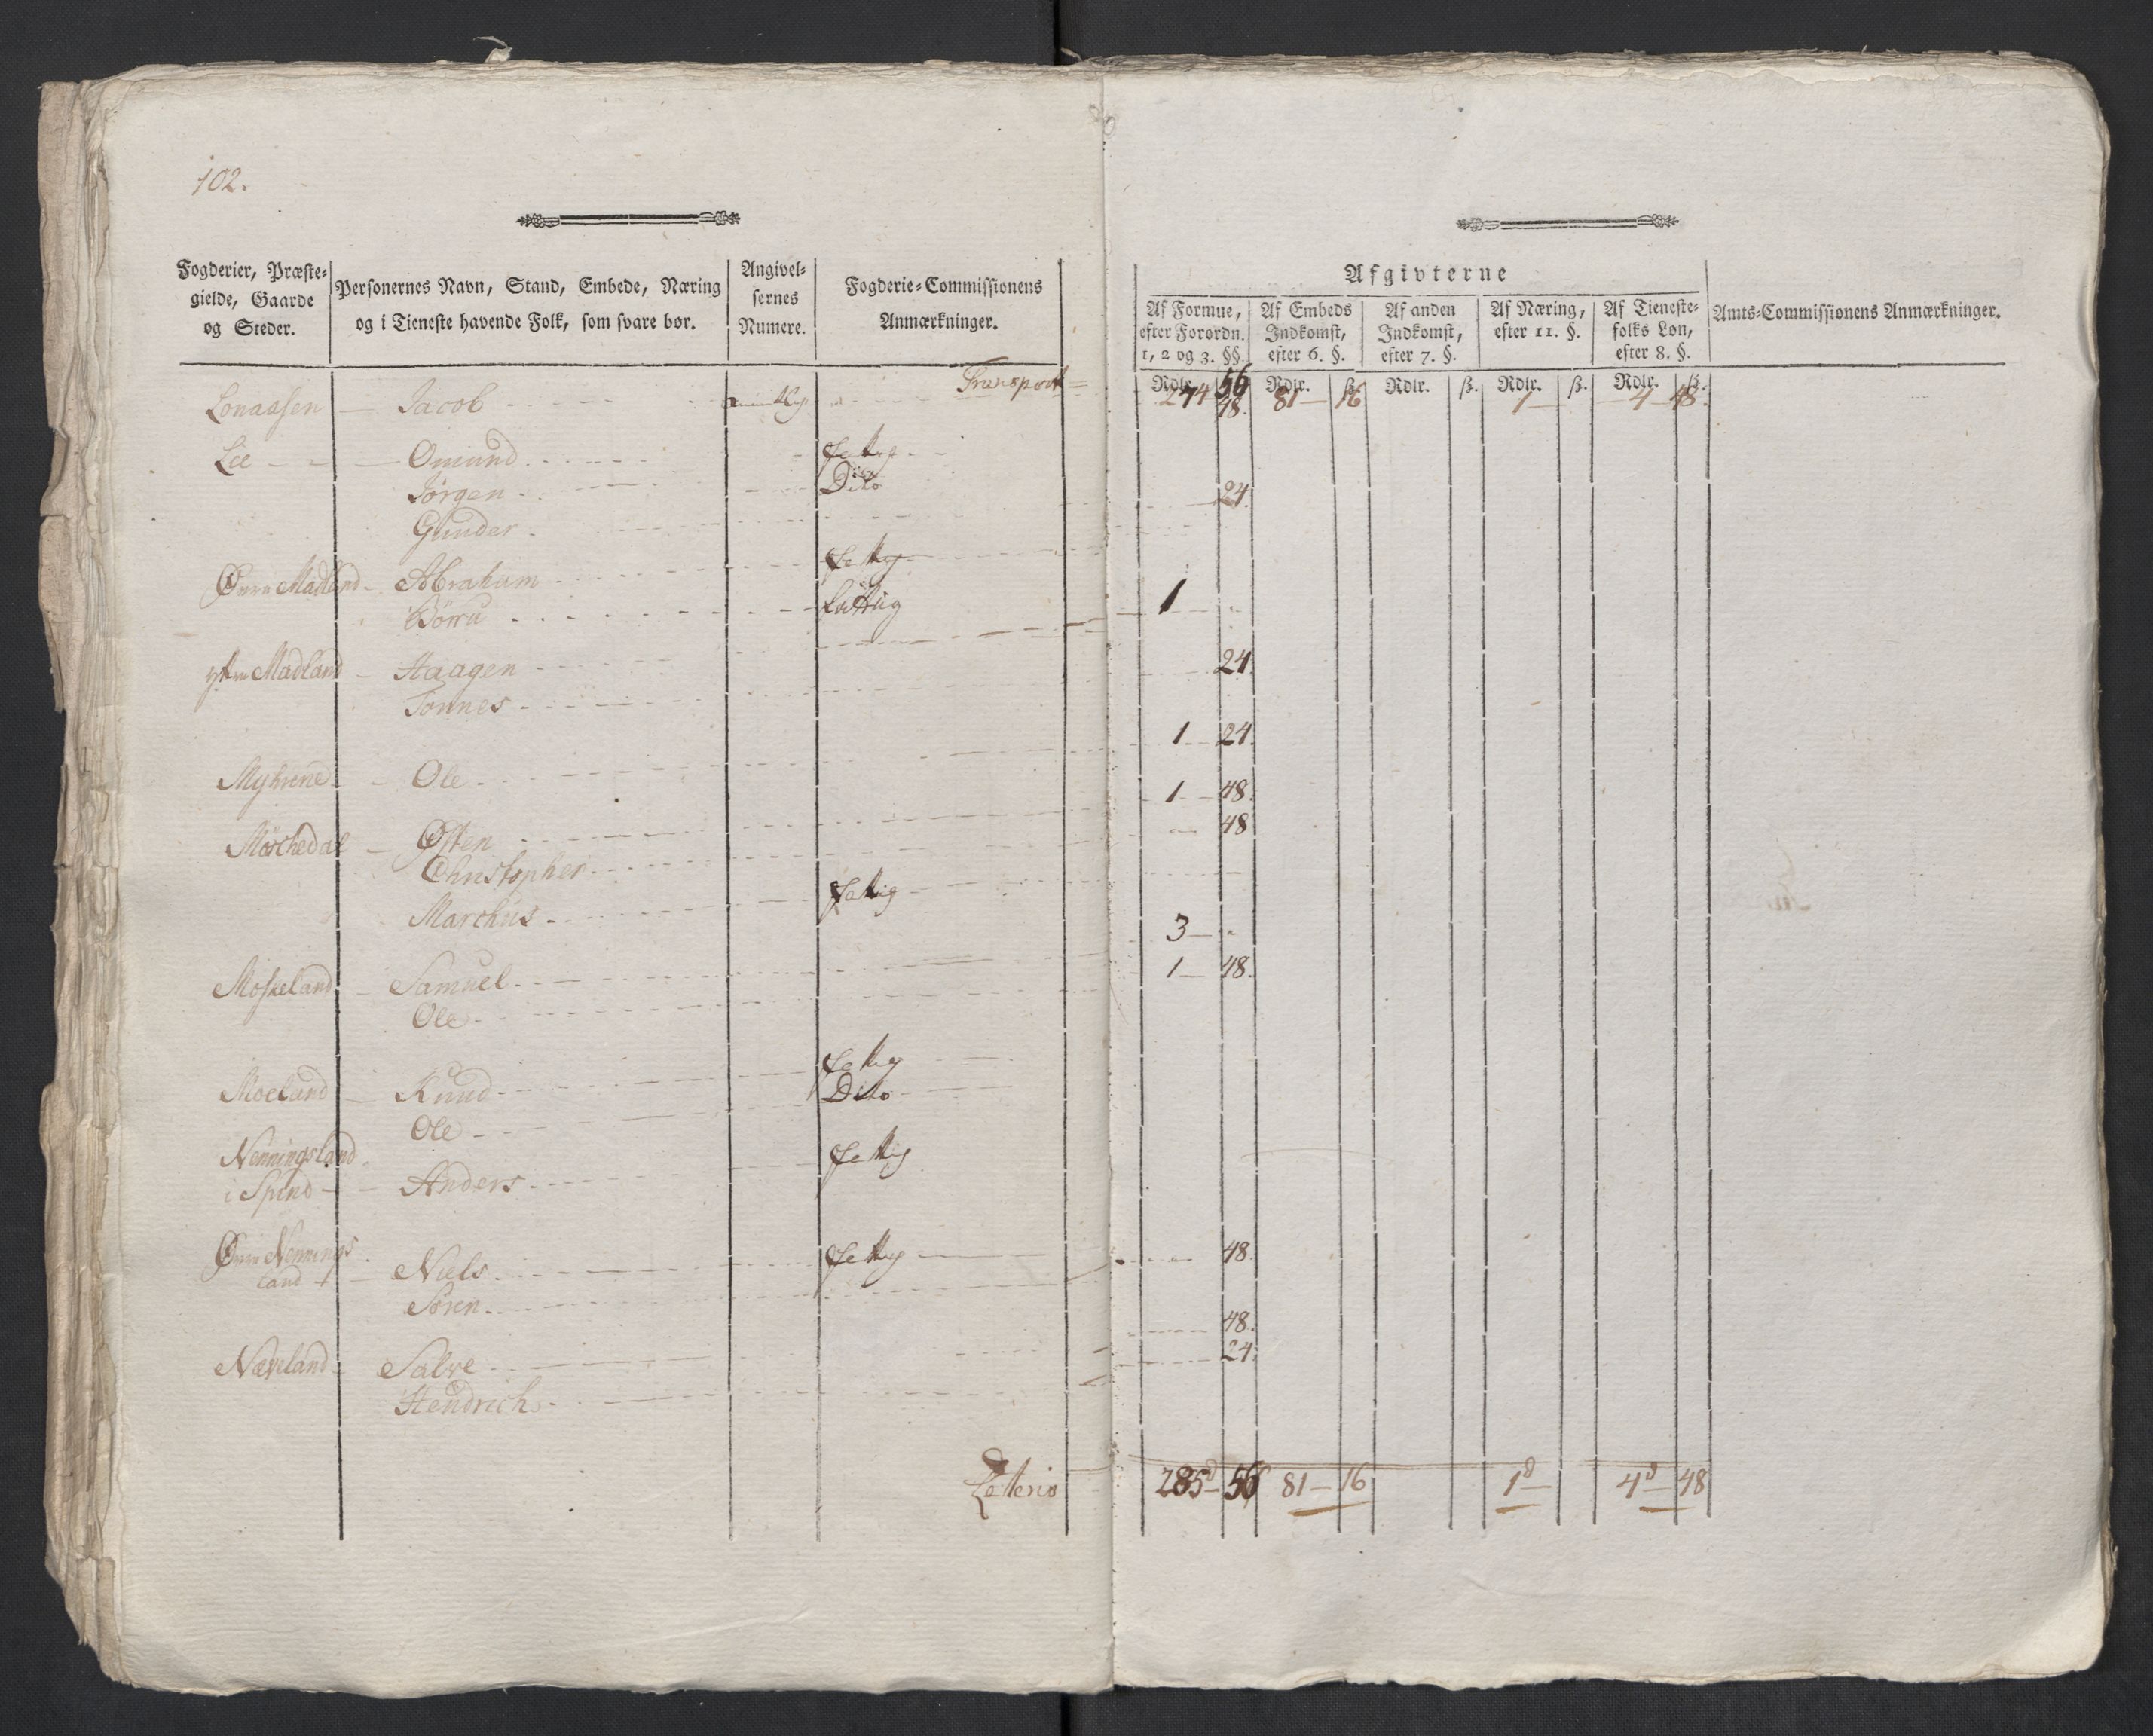 102.
Fogderier, Præste-
gielde, Gaarde
og Steder.
Personernes Navn, Stand, Embede, Næring
og i Tieneste havende Folk, som svare bør.
Angivel-
sernes
Numere.
Fogderie-Commissionens
Anmærkninger.
Afgivterne
Af Formue,
efter Forordn.
1, 2 og 3. §§.
Af Embeds
Indkomst,
efter 6. §.
Af anden
Indkomst,
efter 7. §.
Af Næring,
efter 11. §.
Af Tieneste-
folks Løn,
efter 8. §.
Amts-Commissionens Anmærkninger.
Rdlr. ß. Rdlr. ß. Rdlr. ß. Rdlr. ß. Rdlr. ß.
Transport 274 56 48. 81 16 1 4 48.
Lonaasen Jacob
Lie Omund fattig
Jørgen Dito
Gunder 24.
Øvre Madland Abraham fattig
Börru fattig
ytre Madland Haagen 1
Tønnes 24.
Myhrene Ole 1 24.
Møschedal Østen 1 48.
Christopher 48
Marchus fattig
Moskeland Samuel 3
Ole 1 48.
Moeland Knud fattig
Ole Dito
Nenningsland
i Spind Anders fattig
Øvre Nennings
land Niels fattig
Søren 48.
Næveland Salve 48.
Hendrich 24.
Lateris 285 56 81 16 1 4 48